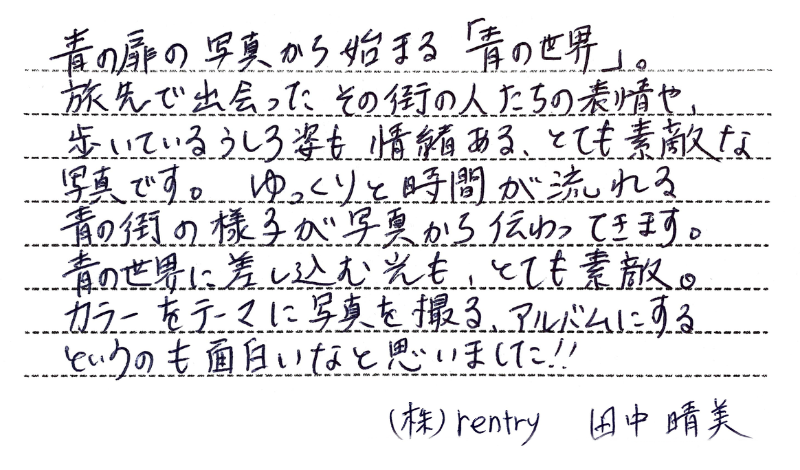 青の扉の写真から始まる「青の世界」。
旅先で出会ったその街の人たちの表情や、
歩いているうしろ姿も情緒ある、とても素敵な
写真です。 ゆっくりと時間が流れる
青の街の様子が写真から伝わってきます。
青の世界に差し込む光も、とても素敵。
カラーをテーマに写真を撮る、アルバムにする
というのも面白いなと思いました!!
(株)rentry 田中晴美